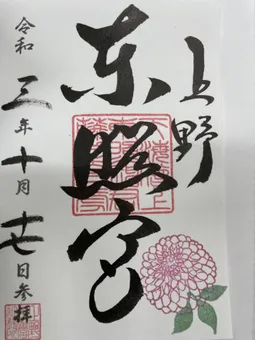 上野
東照宮
令和三年十月十七日参拝